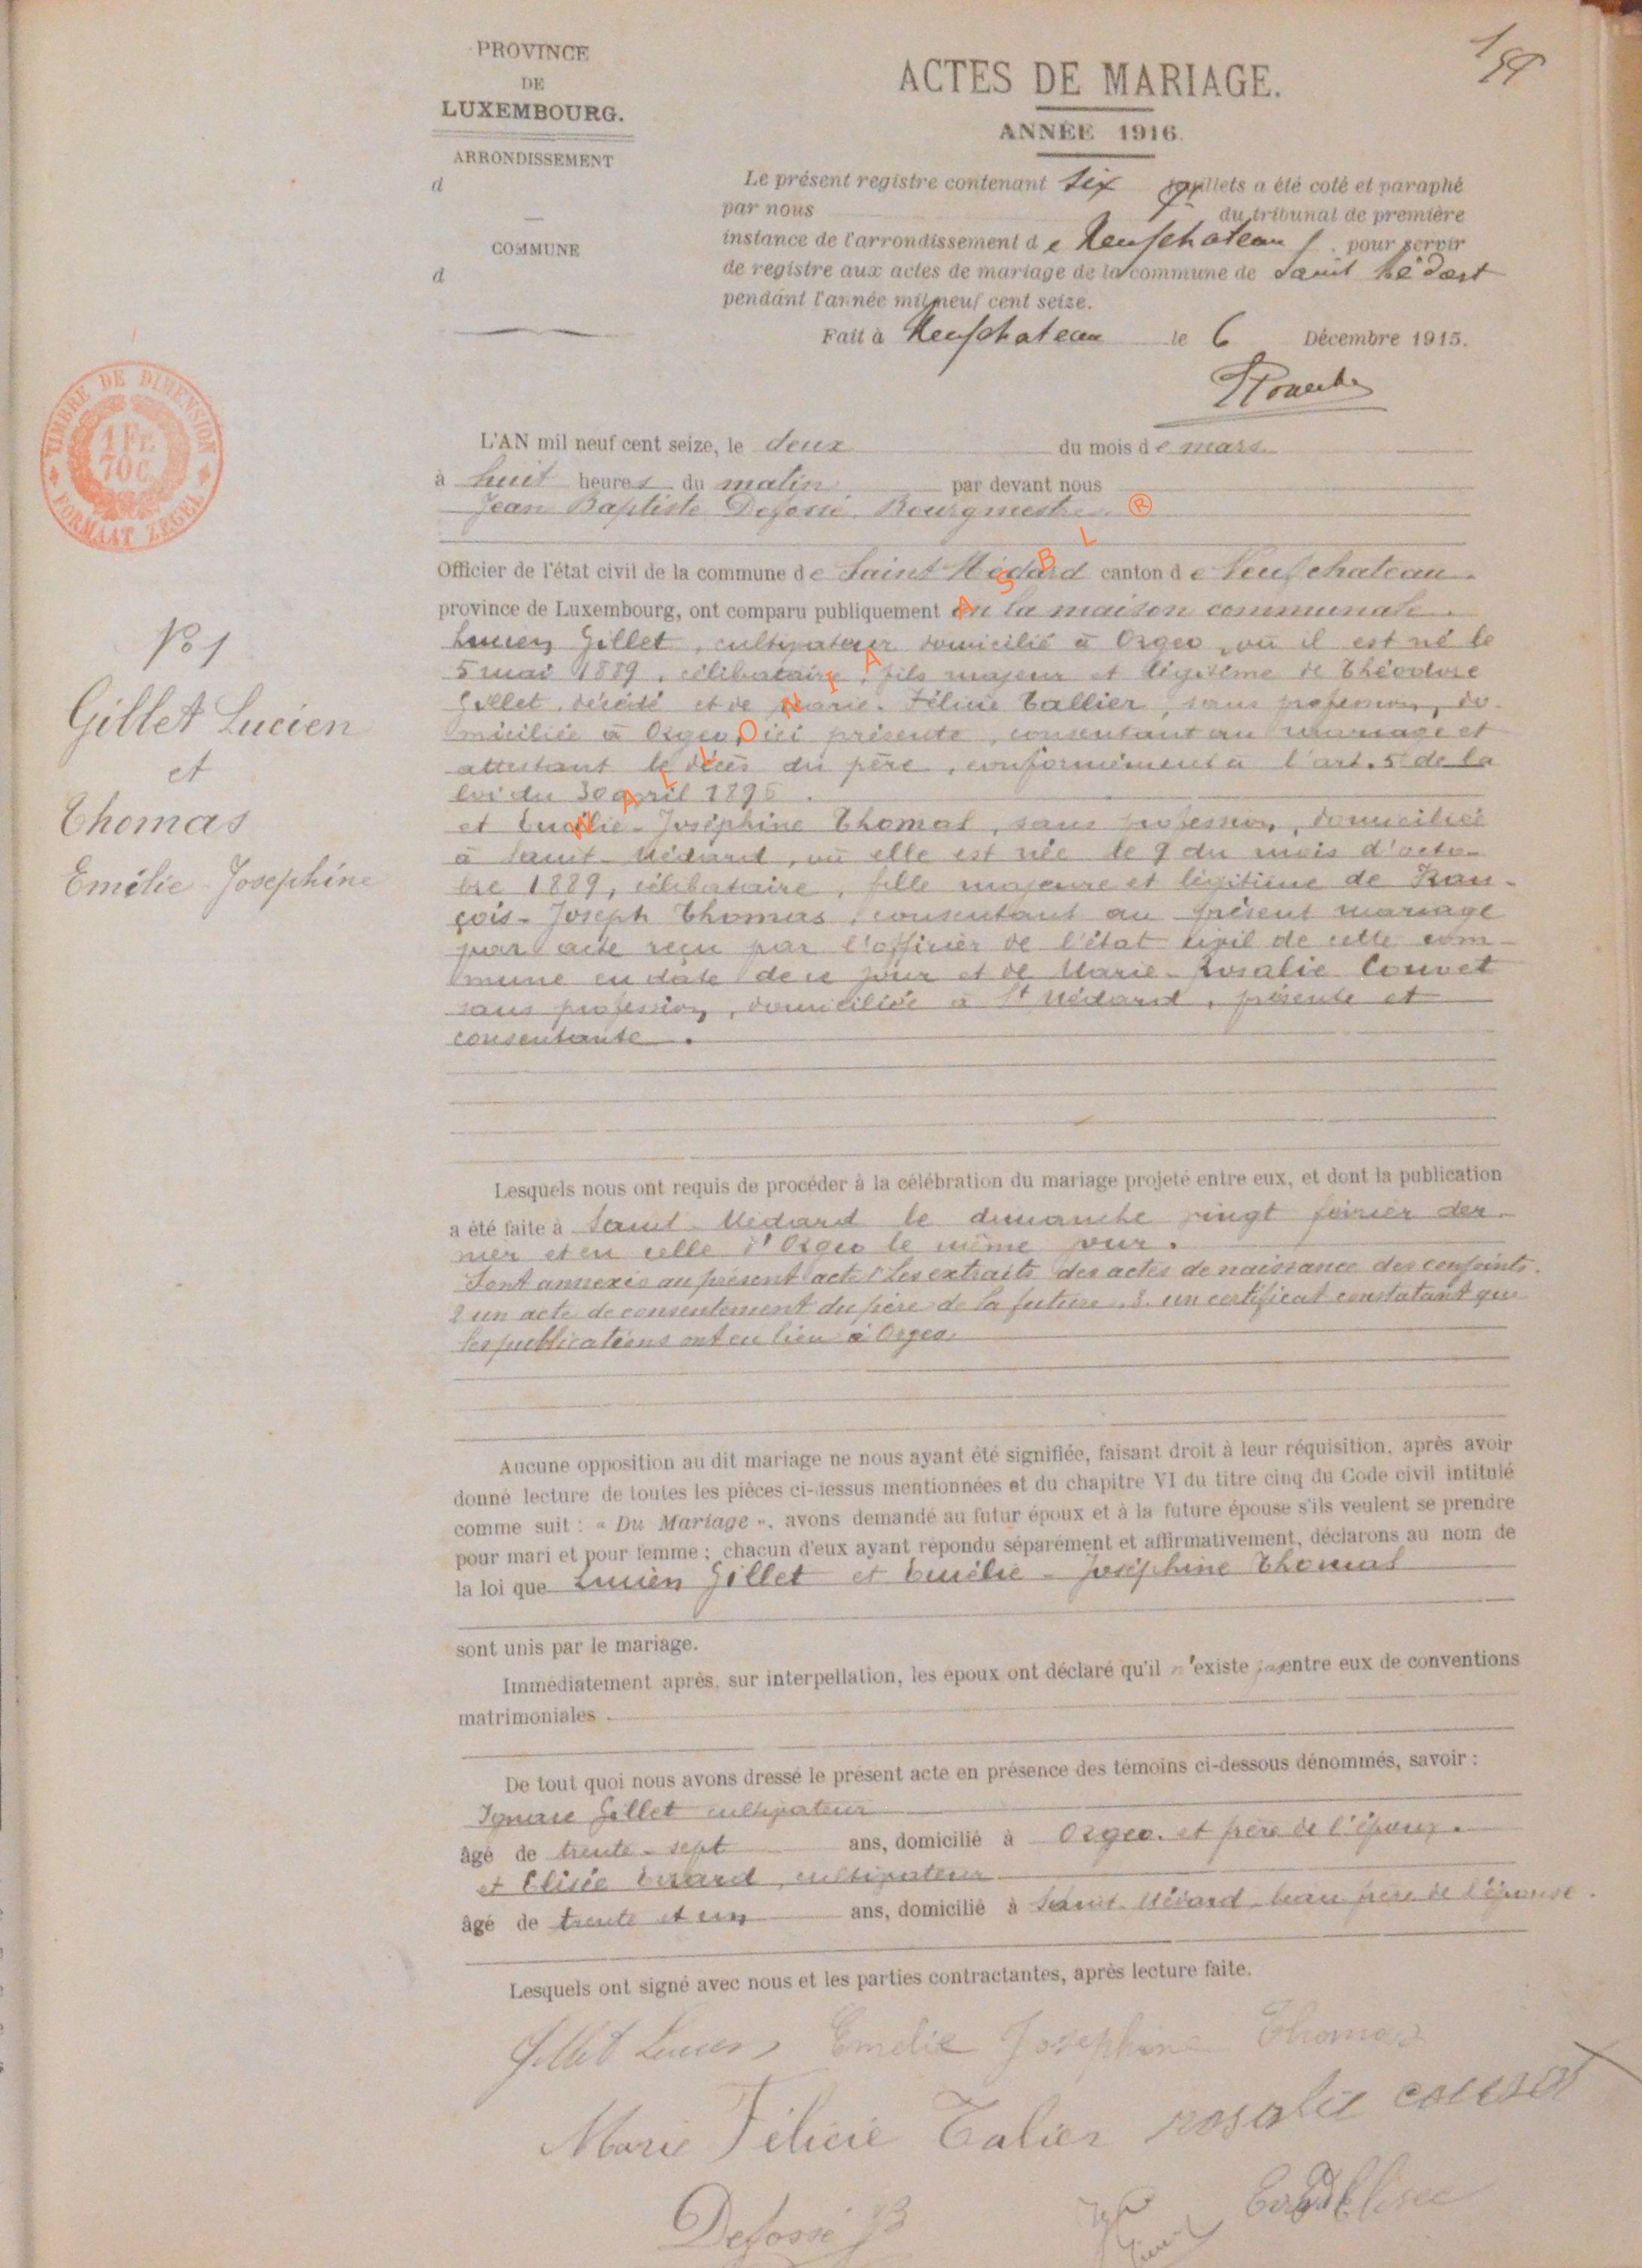 PROVINCE
DE
LUXEMBOURG.
ARRONDISSEMENT
d
COMMUNE
d
ACTES DE MARIAGE.
ANNÉE 1916.
Le présent registre contenant six feuillets a été coté et paraphé
par nous du tribunal de première
instance de l'arrondissement de Neufchateau pour servir
de registre aux actes de mariage de la commune de Saint Médart
pendant l'année mil neuf cent seize.
Fait à Neufchateau le 6 Décembre 1915.
TIMBRE DE DIMENSION
1 Fr.
70 C.
FORMAAT ZEGEL
L'AN mil neuf cent seize, le deux du mois de mars
à huit heures du matin par devant nous
Jean Baptiste Defossé, Bourgmestre
Officier de l'état civil de la commune de Saint Médard canton de Neufchateau.
province de Luxembourg, ont comparu publiquement en la maison communale.
Lucien Gillet, cultivateur domicilié à Orgeo, où il est né le
5 mai 1889, célibataire, fils majeur et légitime de Théodore
Gillet, décédé et de Marie-Félicie Tallier, sans profession, do-
miciliée à Orgeo, ici présente, consentant au mariage et
attestant le décès du père, conformément à l'art. 5 de la
loi du 30 avril 1896.
et Emélie-Joséphine Thomas, sans profession, domiciliée
à Saint-Médard, où elle est née le 9 du mois d'octo-
bre 1889, célibataire, fille majeure et légitime de Fran-
çois-Joseph Thomas, consentant au présent mariage
par acte reçu par l'officier de l'état civil de cette com-
mune en date de ce jour et de Marie-Rosalie Couvet
sans profession, domiciliée à St Médard, présente et
consentante.
WALLONIA ASBL ®
No 1
Gillet Lucien
et
Thomas
Emélie-Josephine
Lesquels nous ont requis de procéder à la célébration du mariage projeté entre eux, et dont la publication
a été faite à Saint-Médard le dimanche vingt février der-
nier et en celle d'Orgeo le même jour.
Sont annexés au présent acte 1 les extraits des actes de naissance des conjoints.
2 un acte de consentement du père de la future. 3. un certificat constatant que
les publications ont eu lieu à Orgeo.
Aucune opposition au dit mariage ne nous ayant été signifiée, faisant droit à leur réquisition, après avoir
donné lecture de toutes les pièces ci-dessus mentionnées et du chapitre VI du titre cinq du Code civil intitulé
comme suit : « Du Mariage », avons demandé au futur époux et à la future épouse s'ils veulent se prendre
pour mari et pour femme ; chacun d'eux ayant répondu séparément et affirmativement, déclarons au nom de
la loi que Lucien Gillet et Emélie-Joséphine Thomas
sont unis par le mariage.
Immédiatement après, sur interpellation, les époux ont déclaré qu'il n'existe pas entre eux de conventions
matrimoniales.
De tout quoi nous avons dressé le présent acte en présence des témoins ci-dessous dénommés, savoir :
Ignace Gillet cultivateur
âgé de trente-sept ans, domicilié à Orgeo. et frère de l'époux.
et Elisée Evrard, cultivateur
âgé de trente et un ans, domicilié à Saint Médard, beau frère de l'épouse.
Lesquels ont signé avec nous et les parties contractantes, après lecture faite.
Gillet Lucien Emélie Josephine Thomas
Marie Félicie Talier rosalie couvet
Defossé JB Evrard Elisee